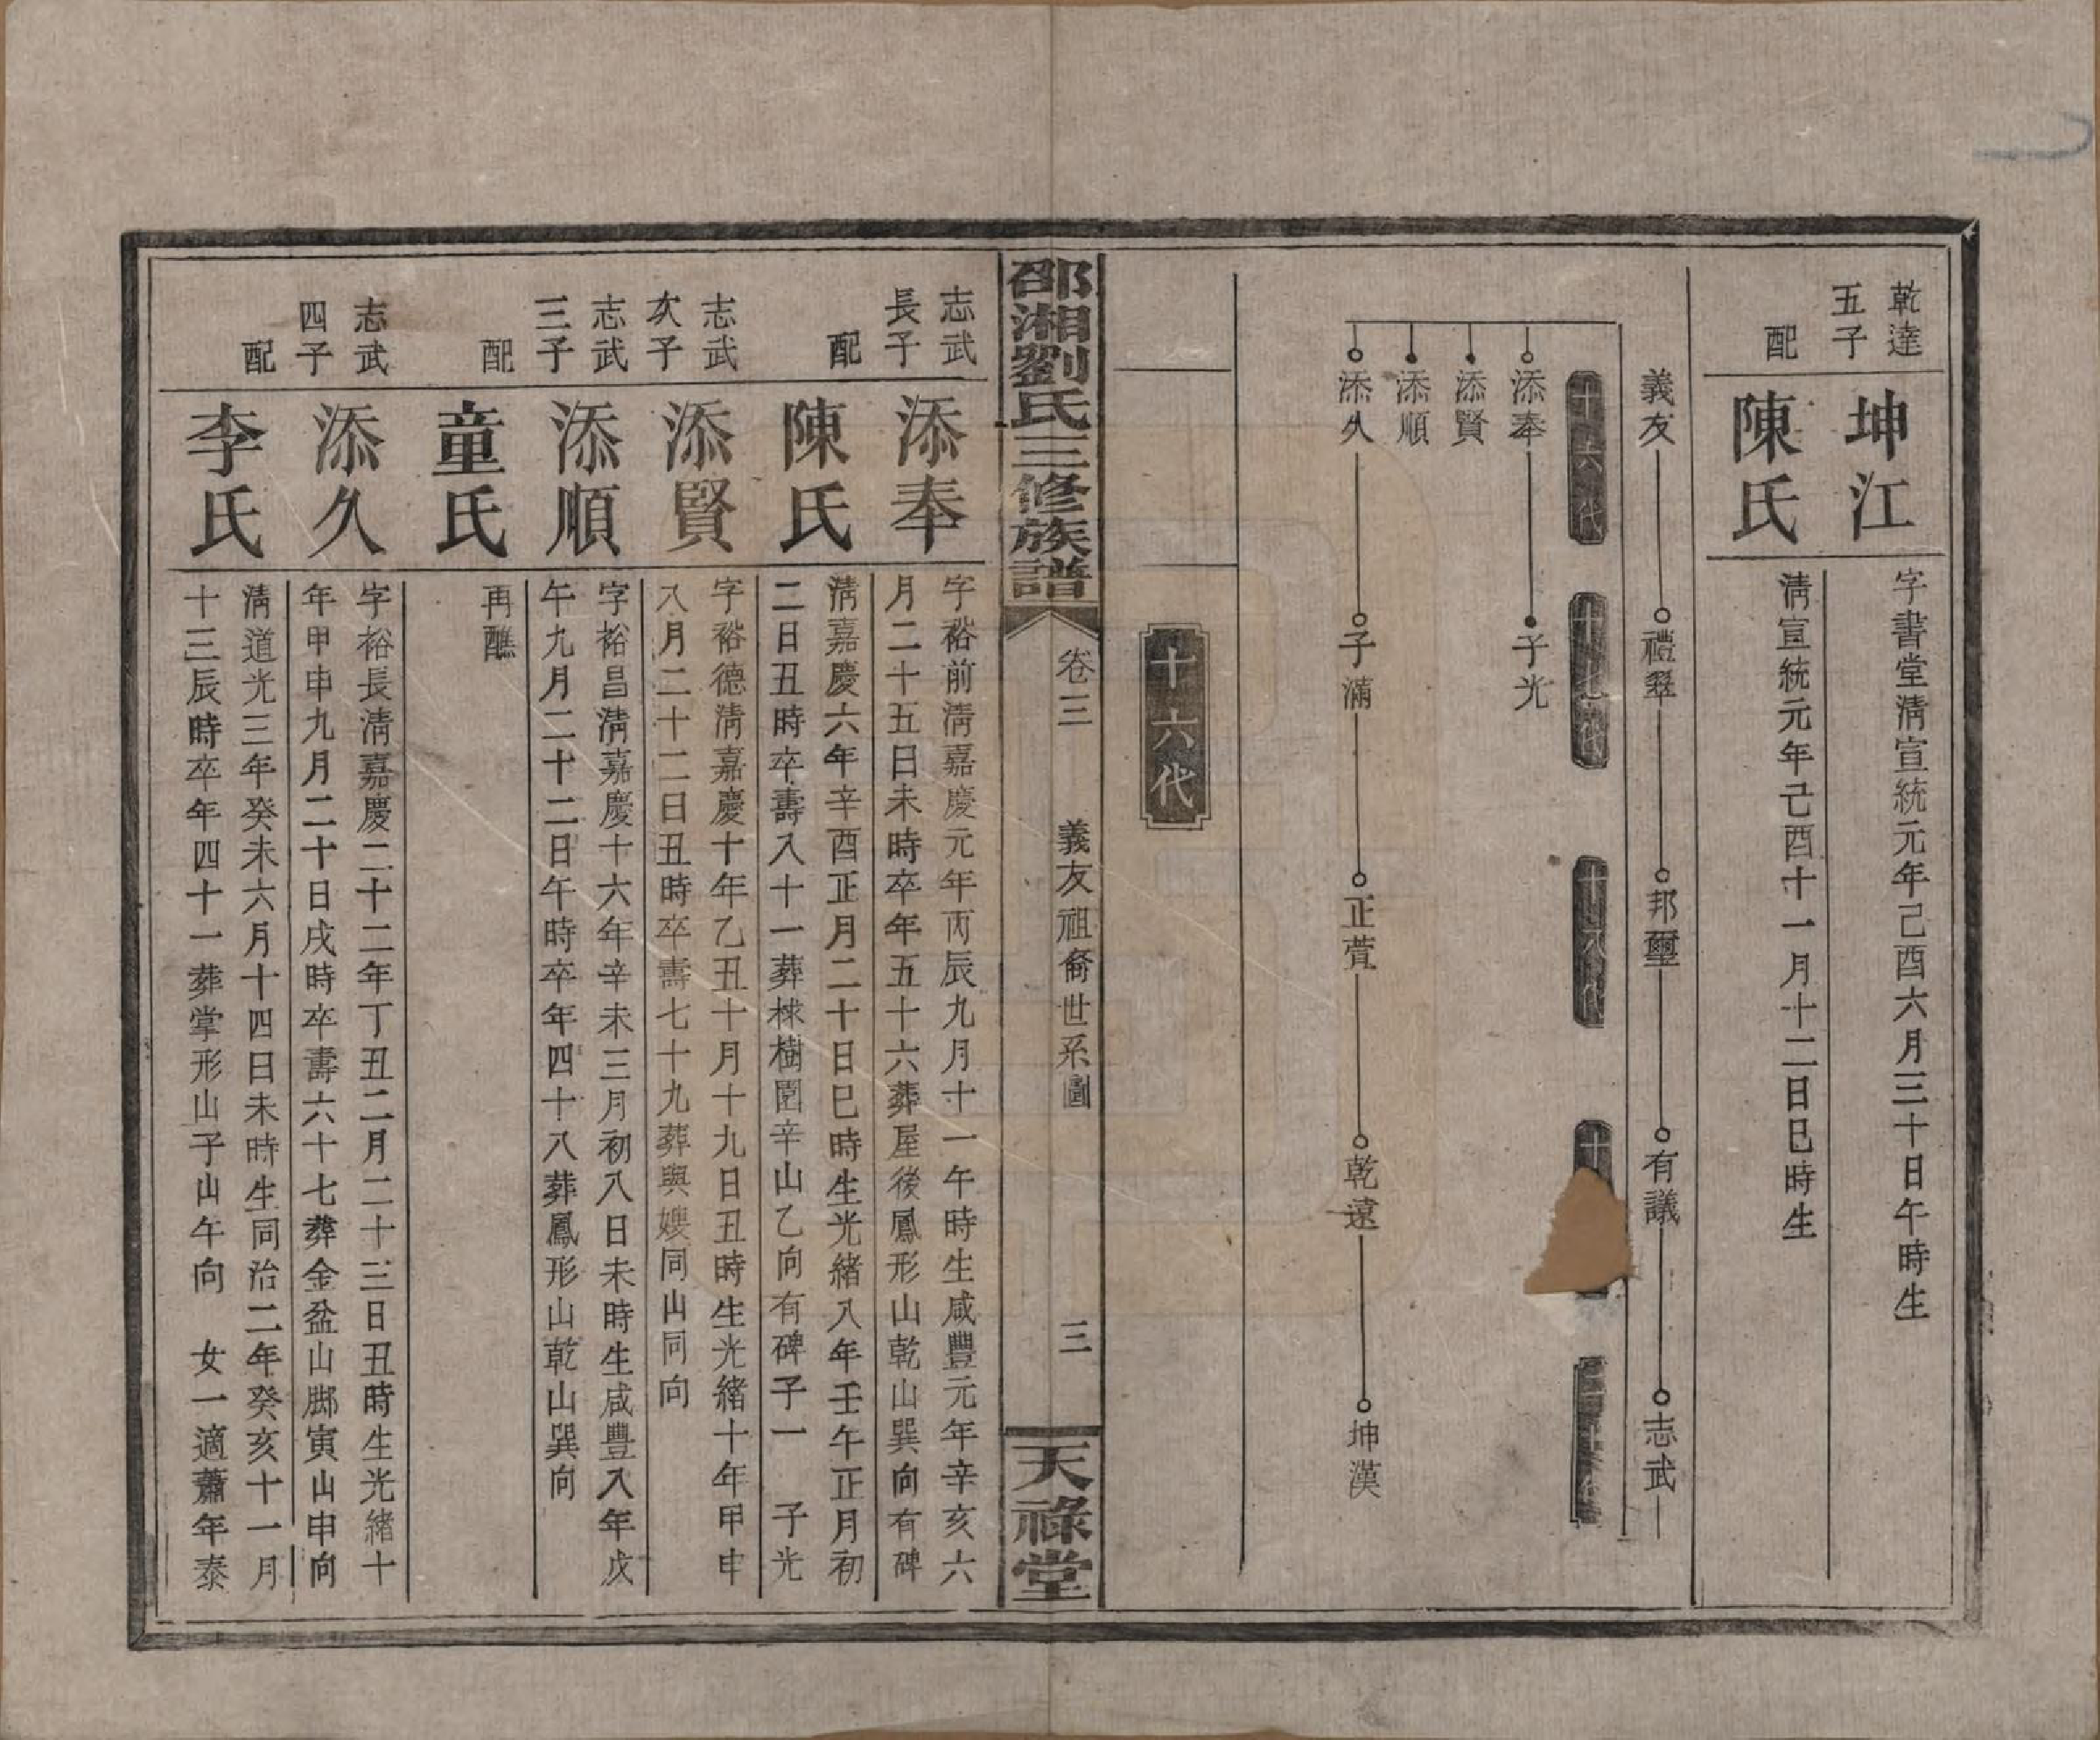 乾達
五子
坤江
字書堂清宣統元年己酉六月三十日午時生
配
陳氏
清宣統元年己酉十一月十二日巳時生
義友
禮翠
邦璽
有議
志武
十六代
十七代
十八代
十
添奉
子光
添賢
添順
添久
子滿
正萱
乾遠
坤漢
十六代
邵湘劉氏三修族譜
卷三
義友祖裔世系圖
三
天祿堂
志武
長子
添奉
字裕前清嘉慶元年丙辰九月十一午時生咸豐元年辛亥六
月二十五日未時卒年五十六葬屋後鳳形山乾山巽向有碑
配
陳氏
清嘉慶六年辛酉正月二十日巳時生光緒八年壬午正月初
二日丑時卒壽八十一葬梂樹園辛山乙向有碑子一 子光
志武
次子
添賢
字裕德清嘉慶十年乙丑十月十九日丑時生光緒十年甲申
八月二十二日丑時卒壽七十九葬與嫂同山同向
志武
三子
添順
字裕昌清嘉慶十六年辛未三月初八日未時生咸豐八年戊
午九月二十二日午時卒年四十八葬鳳形山乾山巽向
配
童氏
再醮
志武
四子
添久
字裕長清嘉慶二十二年丁丑二月二十三日丑時生光緒十
年甲申九月二十日戌時卒壽六十七葬金盆山脚寅山申向
配
李氏
清道光三年癸未六月十四日未時生同治二年癸亥十一月
十三辰時卒年四十一葬掌形山子山午向 女一適蕭年泰